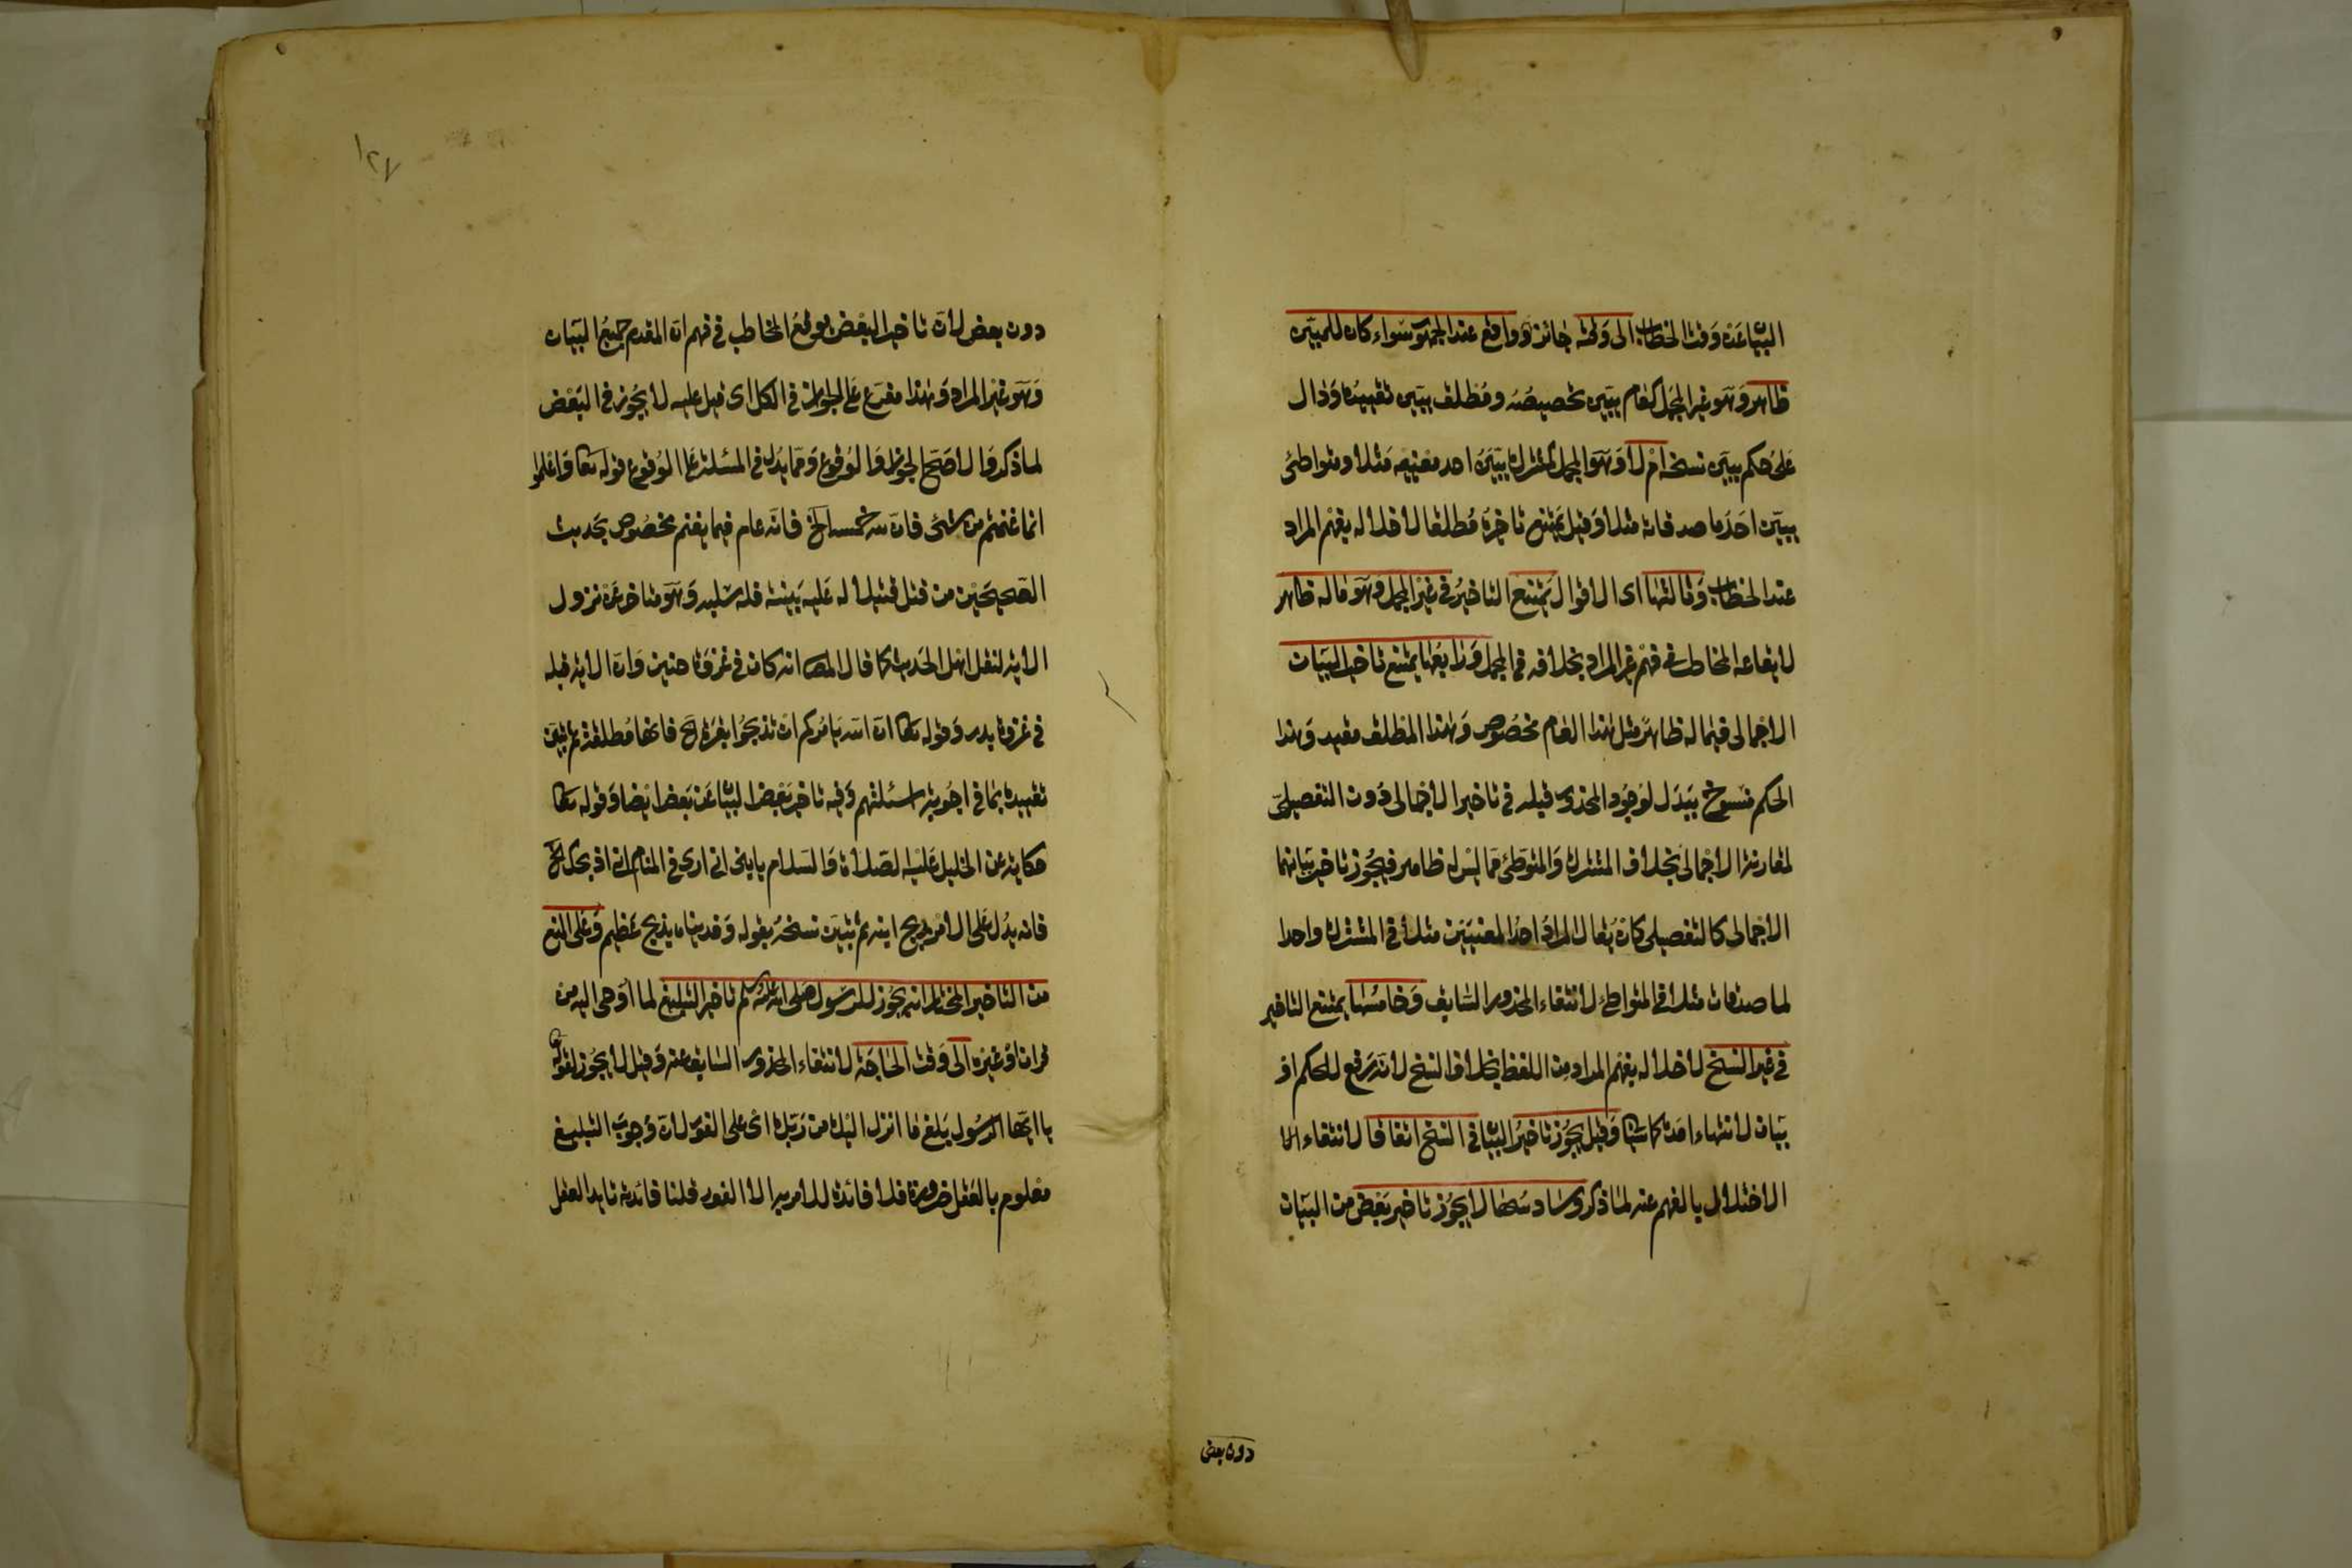 البيان عن وقت الخطاب الى وقته جائز وواقع عند الجمهور سواء كان للمبين
ظاهر وهو غير المجمل كعام يبين تخصيصه ومطلق يبين تقييده ودال
على حكم يبين نسخه ام لا وهو المجمل كمشترك يبين احد معنييه مثلا ومتواطئ
يبين احد ما صدقاته مثلا وقيل يمتنع تاخيره مطلقا لاخلاله بفهم المراد
عند الخطاب وثالثها اى الاقوال يمتنع التاخير فى غير المجمل وهو ماله ظاهر
لايقاعه المخاطب فى فهم غير المراد بخلافه فى المجمل ورابعها يمتنع تاخير البيان
الاجمالى فيما له ظاهر مثل هذا العام مخصوص وهذا المطلق مقيد وهذا
الحكم منسوخ ببدل لوجود المحذور قبله فى تاخير الاجمالى دون التفصيلى
لمقارنة الاجمالى بخلاف المشترك والمتوطئ مما ليس له ظاهر فيجوز تاخير بيانهما
الاجمالى كالتفصيلى كان يقال المراد احد المعنيين مثلا فى المشترك واحد
لما صدقات مثلا فى المتواطئ لانتفاء المحذور السابق وخامسها يمتنع التاخير
فى غير النسخ لاخلاله بفهم المراد من اللفظ بخلاف النسخ لانه رفع للحكم او
بيان لانتهاء امده كما سياتى وقيل يجوز تاخير البيان فى النسخ اتفاقا لانتفاء الا
الاختلال بالفهم عنه لما ذكر وسادسها لا يجوز تاخير بعض من البيان
دون بعض
١٢٧
دون بعض لان تاخير البعض يوقع المخاطب فى فهم ان المقدم جميع البيان
وهو غير المراد وهذا مفرع على الجواز فى الكل اى قيل عليه لا يجوز فى البعض
لما ذكر والاصح الجواز والوقوع ومما يدل فى المسئلة على الوقوع قوله تعا واعلموا
انما غنمتم من شئ فان لله خمسه الخ فانه عام فيما يغنم مخصوص بحديث
الصحيحين من قتل قتيلا له عليه بينة فله سلبه وهو متاخر عن نزول
الاية لنقل اهل الحديث كما قال المص انه كان فى غزوة حنين وان الاية قبله
فى غزوة بدر وقوله تعا ان الله يامركم ان تذبحوا بقرة الخ فانها مطلقة ثم تبين
تقييده بما فى اجوبة اسئلتهم وفيه تاخير بعض البيان عن بعض ايضا وقوله تعا
حكاية عن الخليل عليه الصلاة والسلام يا بنى انى ارى فى المنام انى اذبحك الخ
فانه يدل على الامر بذبح ابنه ثم تبين نسخه بقوله وفديناه بذبح عظيم وعلى المنع
من التاخير المختار انه يجوز للرسول صلى الله عليه وسلم تاخير التبليغ لما اوحى اليه من
قران او غيره الى وقت الحاجة لانتفاء المحذور السابق عنه وقيل لا يجوز لقوله تعا
يا ايها الرسول بلغ ما انزل اليك من ربك اى على الفور لان وجوب التبليغ
معلوم بالعقل ضرورة فلا فائدة للامر به الا الفور قلنا فائدته تاييد العقل